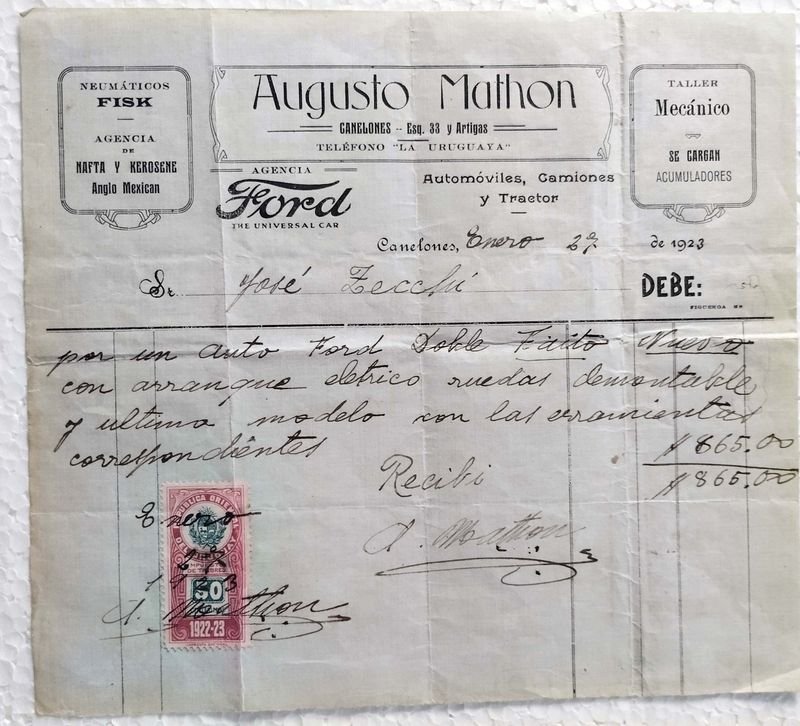 NEUMÁTICOS
FISK
AGENCIA
DE
NAFTA Y KEROSENE
Anglo Mexican
Augusto Mathon
CANELONES -- Esq. 33 y Artigas
TELÉFONO "LA URUGUAYA"
TALLER
Mecánico
SE CARGAN
ACUMULADORES
AGENCIA
Ford
THE UNIVERSAL CAR
Automóviles, Camiones
y Tractor
Canelones, Enero 27 de 1923
Sr. José Zecchi DEBE:
por un auto Ford Doble Faito Nuevo
con arranque eletrico ruedas demontable
y ultimo modelo con las erramientas
correspondientes $ 865.00
Recibi $ 865.00
A. Mathon
Enero
27
1923
A. Mathon
50
1922-23